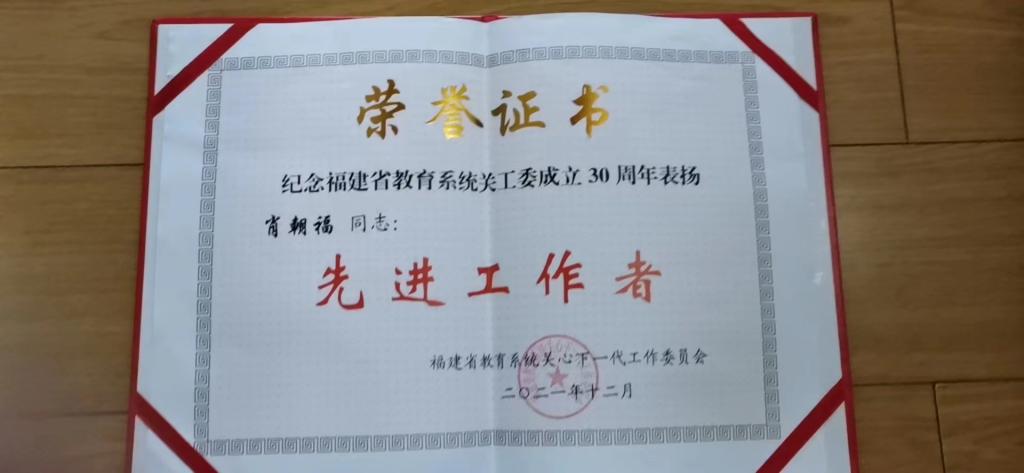 荣誉证书
纪念福建省教育系统关工委成立 30 周年表扬
肖朝福 同志：
先进工作者
福建省教育系统关心下一代工作委员会
二〇二一年十二月